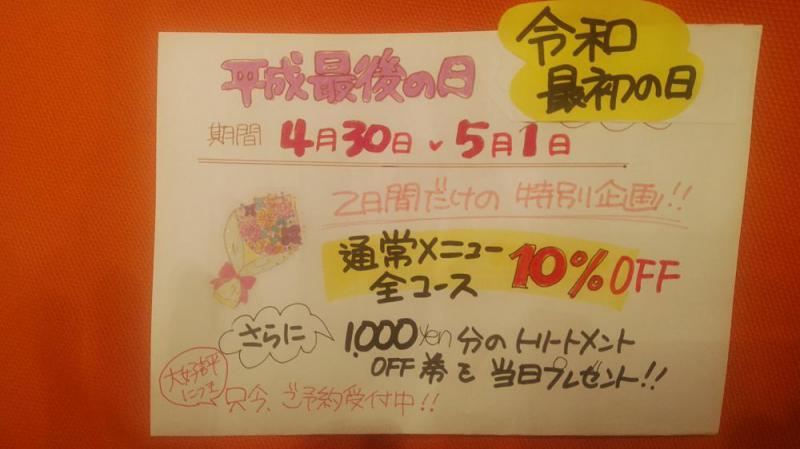 平成最後の日
令和
最初の日
期間 4月30日、5月1日
2日間だけの 特別企画!!
通常メニュー
全コース 10%OFF
さらに 1,000yen分のトリートメント
OFF券を当日プレゼント!!
大好評
につき
只今、ご予約受付中!!